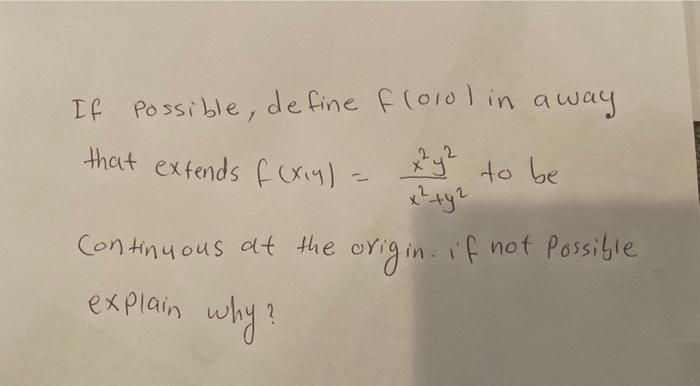 If possible, define f(0,0) in a way
that extends f(x,y) = x²y² / x²+y² to be
continuous at the origin. if not possible
explain why?